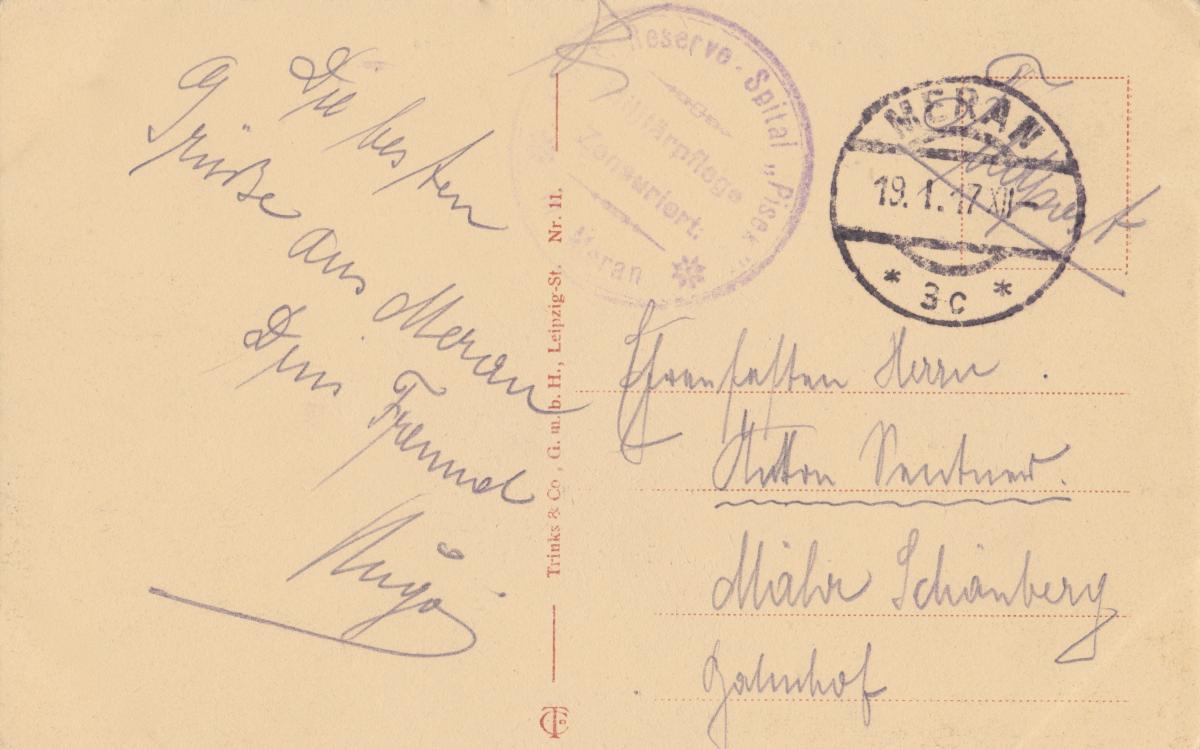 Die besten
Grüße aus Meran
Dein Freund
Hugo
Trinks & Co., G. m. b. H., Leipzig-St. Nr. 11.
Reserve-Spital „Pisek"
Militärpflege
Zensuriert.
Meran
MERAN
19.1.17 XII
* 3c *
Herrn
Anton
Mähr Schönberg
Bahnhof